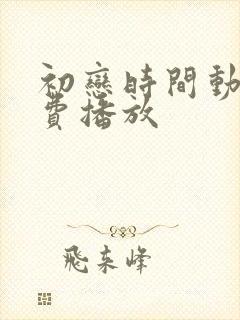 初戀時間動
費播放
飛來峰